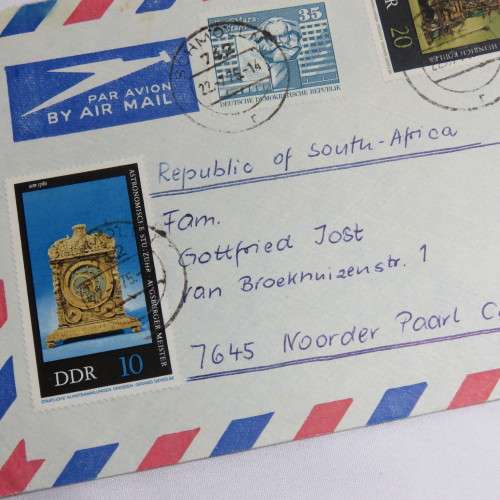 35
DEUTSCHE DEMOKRATISCHE REPUBLIK
20
PAR AVION
BY AIR MAIL
Republic of South-Africa
Fam.
Gottfried Jost
van Broekhuizenstr. 1
7645 Noorder Paarl
um 1560
ASTRONOMISCHE STUTZUHR · AUGSBURGER MEISTER
DDR 10
STAATLICHE KUNSTSAMMLUNGEN DRESDEN